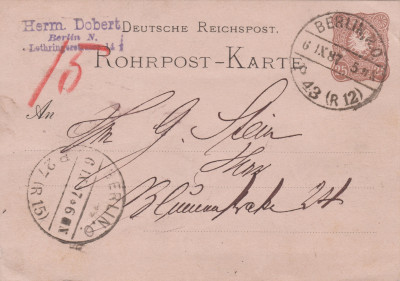 Herm. Dobert
Berlin N.
Lothringerstrasse 14
DEUTSCHE REICHSPOST.
ROHRPOST-KARTE
15
BERLIN, N.O.
6 IX 87 5
P. 43 (R 12)
An
G. Stein
Hier
Blumenstraße 24
BERLIN. O
6 IX 87
P. 27 (R 15)